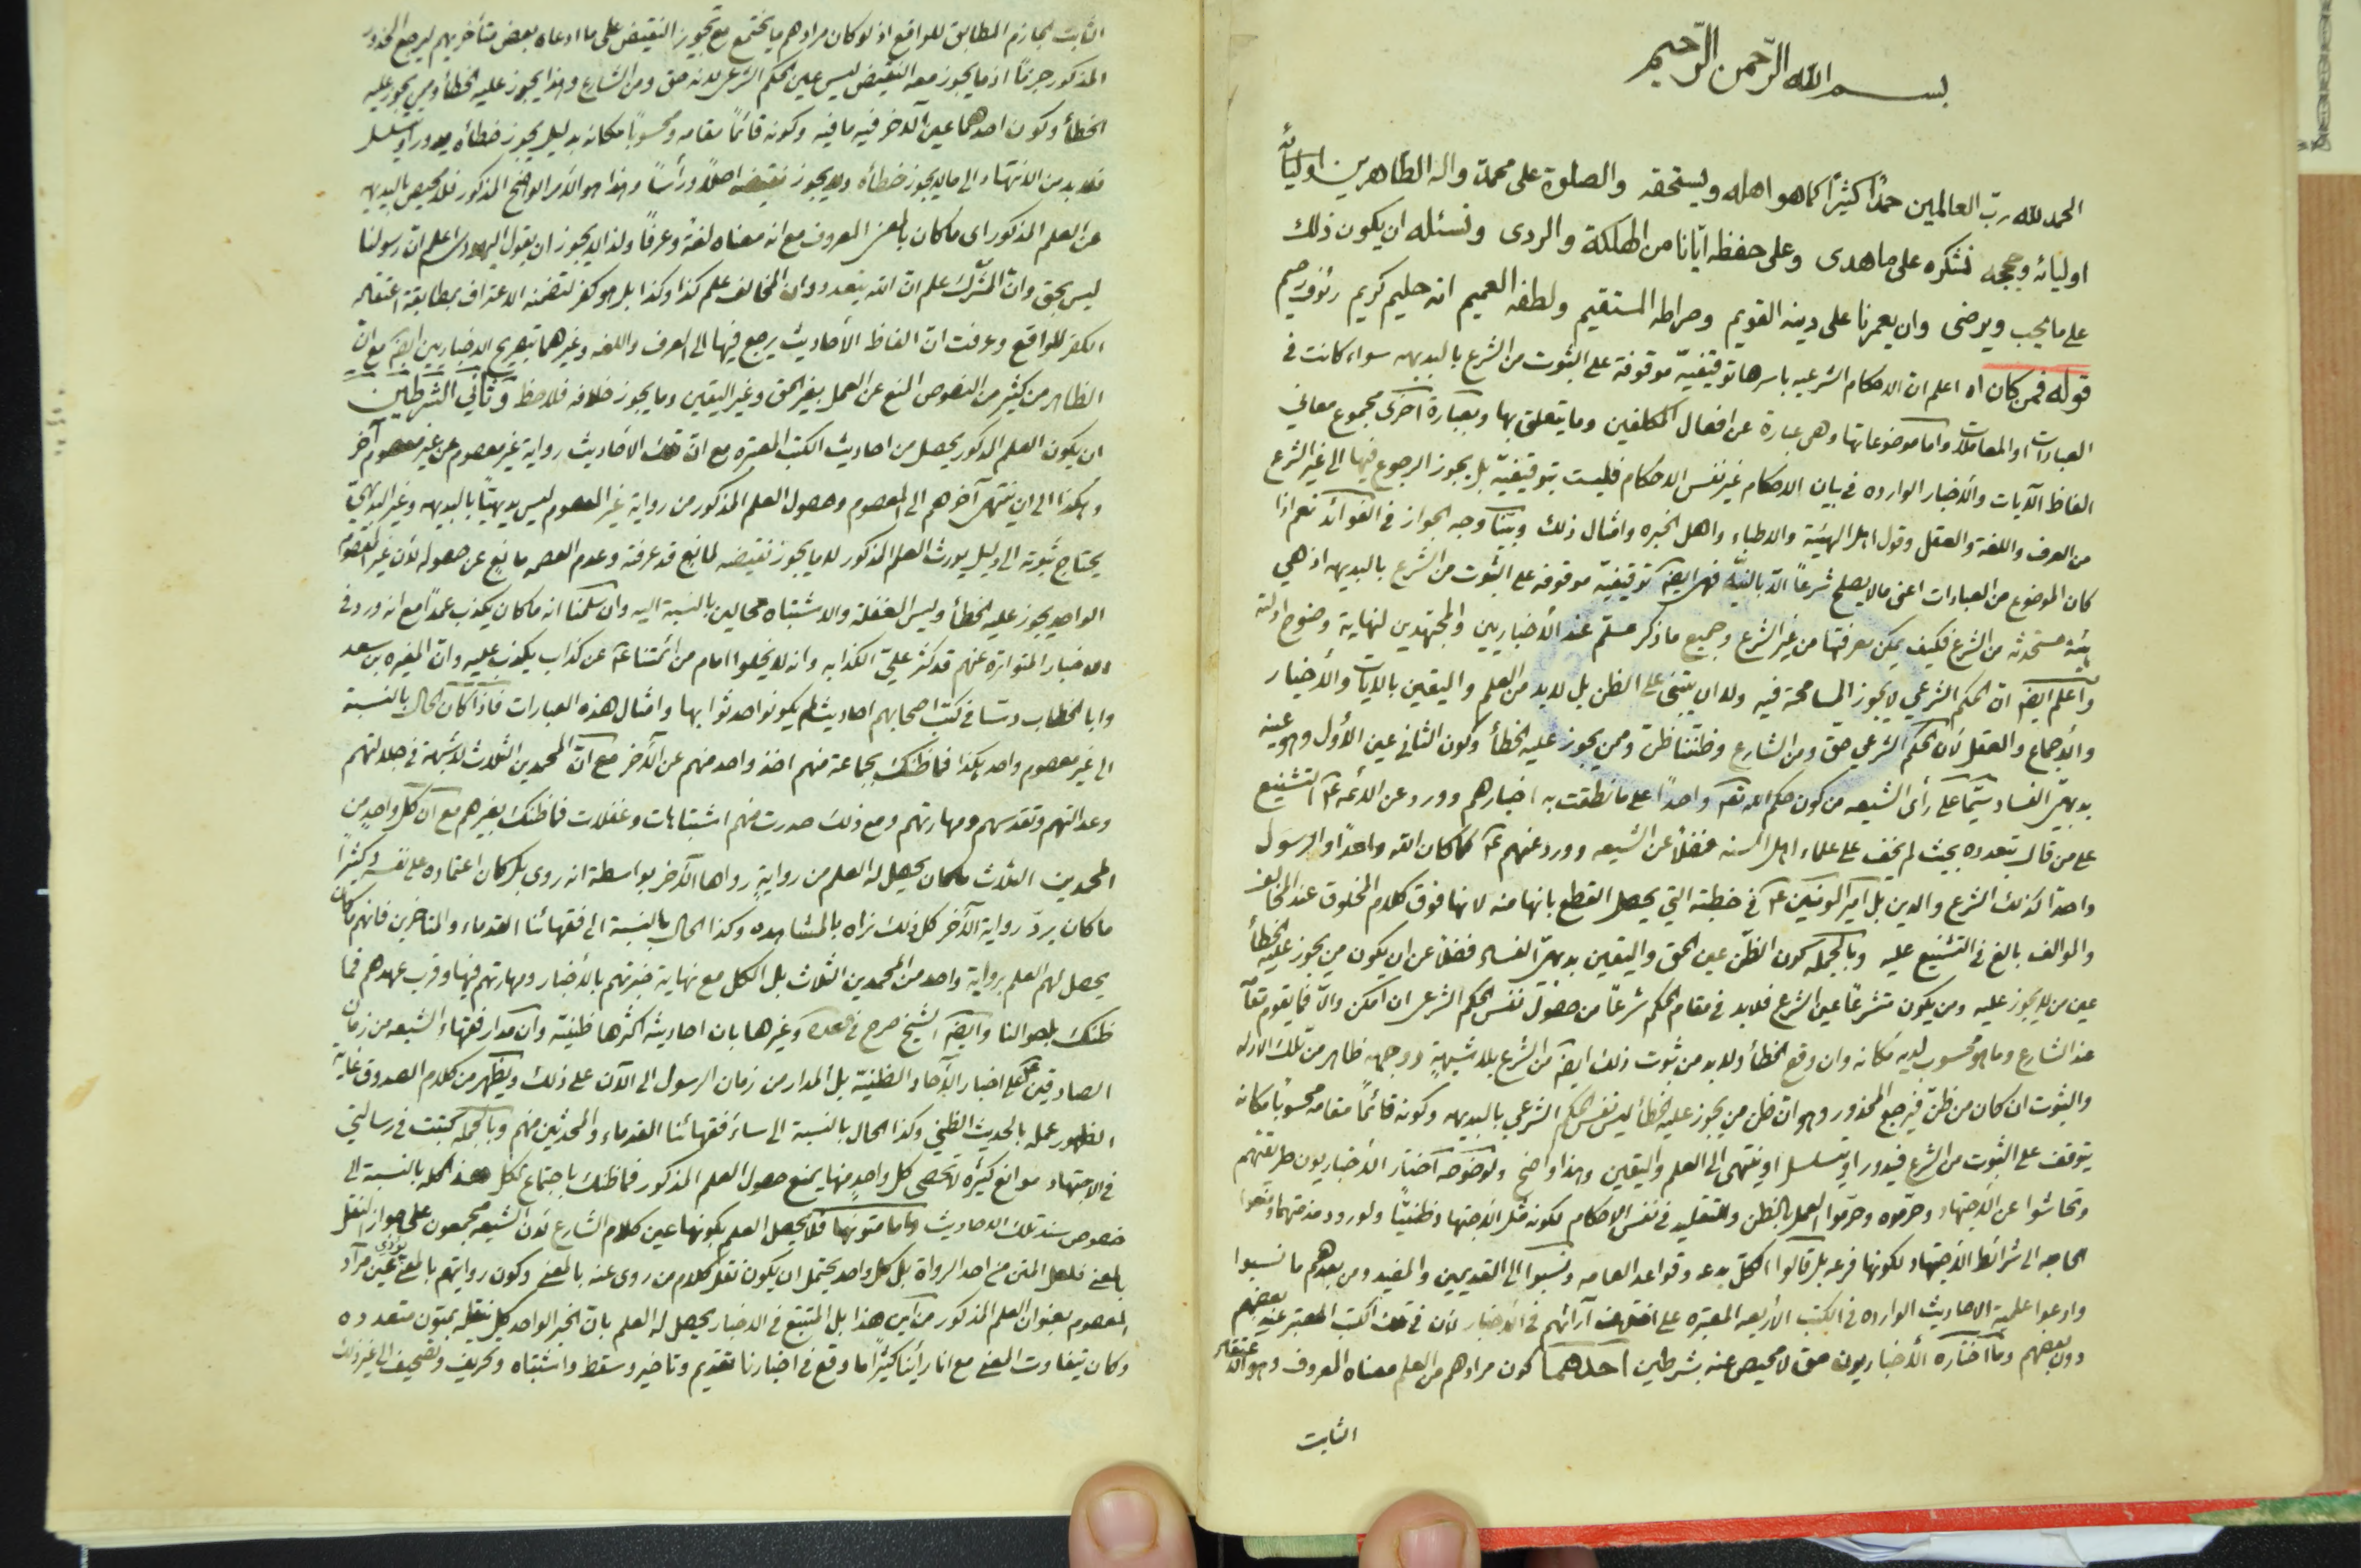 بسم الله الرّحمن الرّحيم
الحمد لله ربّ العالمين حمدًا كثيرًا كما هو اهله ويستحقه والصلوة على محمد واله الطاهرين اوليائه
اوليائه وحججه نشكره على ما هدى وعلى حفظه ايّانا من الهلكة والردى ونسئله ان يكون ذلك
على ما يحب ويرضى وان يعمرنا على دينه القويم وصراطه المستقيم ولطفه العميم انه حليم كريم رئوف رحيم
قوله فمن كان اه اعلم ان الاحكام الشرعيه باسرها توقيفيّة موقوفة على الثبوت من الشرع بالبديهه سواء كانت في
العبادات او المعاملات واما موضوعاتها وهى عبارة عن افعال المكلفين وما يتعلق بها وبعبارة اخرى مجموع معاني
الفاظ الآيات والأخبار الوارده في بيان الاحكام غير نفس الاحكام فليست بتوقيفيّة بل يجوز الرجوع فيها الى غير الشرع
من العرف واللغة والعقل وقول اهل الهيئة والاطباء واهل الخبره وامثال ذلك وبيّنا وجه الجواز في الفوائد نعم اذا
كان الموضوع من العبادات اعنى ما لا يصلح شرعًا الّا بالنيّة فهى ايضًا توقيفيّة موقوفه على الثبوت من الشرع بالبديهه اذ هي
هيئة مستحدثه من الشرع فكيف يمكن معرفتها من غير الشرع وجميع ما ذكر مسلّم عند الأخباريين والمجتهدين لنهاية وضوح ادلته
واعلم ايضًا ان الحكم الشرعي لا يجوز المسامحة فيه ولا ان يبتنى على الظن بل لابد من العلم واليقين بالايات والأخبار
والأجماع والعقل لأن الحكم الشرعي حق ومن الشارع وظننا ظن وممن يجوز عليه الخطأ وكون الثاني عين الأول وهو عينه
بديهيّ الفساد سيّما على رأى الشيعه من كون حكم الله تعالى واحدًا على ما نطقت به اخبارهم وورد عن الائمه ع التشنيع
على من قال بتعدده بحيث لم يخف على علماء اهل السنه فضلًا عن الشيعه وورد عنهم ع كما كان الله واحدًا والرسول
واحدًا كذلك الشرع والدين بل امير المؤمنين ع في خطبته التي يحصل القطع بانها منه لانها فوق كلام المخلوق عند المخالف
والموالف بالغ في التشنيع عليه وبالجمله كون الظن عين الحق واليقين بديهيّ الفساد فضلًا عن ان يكون من يجوز عليه الخطأ
عين من لا يجوز عليه ومن يكون متشرعًا عين الشرع فلابد في مقام الحكم شرعًا من حصول نفس الحكم الشرعى ان امكن والّا فما يقوم مقامه
عند الشارع وما هو محسوب لديه مكانه وان وقع الخطأ ولابد من ثبوت ذلك ايضًا من الشرع بلا شبهة ووجهه ظاهر من تلك الادله
والثبوت ان كان من ظنّ فيرجع المحذور وهو ان ظن من يجوز عليه الخطأ ليس نفس الحكم الشرعي بالبديهه وكونه قائمًا مقامه محسوبًا مكانه
يتوقف على الثبوت من الشرع فيدور او يتسلسل او ينتهى الى العلم واليقين وهذا واضح ولوضوحه اختار الأخباريون طريقتهم
وتحاشوا عن الأجتهاد وحرّموه وحرّموا العمل بالظن والتقليد في نفس الاحكام لكونه مثل الأجتهاد ظنيّا ولورود مذمتهما ومنعوا
الحاجه الى شرائط الأجتهاد لكونها فرعه بل قالوا الكل بدعه وقواعد العامه ونسبوا الى القديمين والمفيد ومن بعدهم ما نسبوا
وادعوا علمية الاحاديث الوارده في الكتب الأربعه المعتبره على اختلاف آرائهم في الأخبار لأن في تلك الكتب المعتبر عند بعضهم
دون بعضهم وما اختاره الأخباريون حق لا محيص عنه بشرطين احدهما كون مرادهم من العلم معناه المعروف وهو الاعتقاد
الثابت
الثابت الجازم المطابق للواقع اذ لو كان مرادهم ما يجتمع مع تجويز النقيض على ما ادعاه بعض متأخريهم ليرجع المحذور
المذكور جزمًا اذ ما يجوز معه النقيض ليس عين الحكم الشرعى لانه حق ومن الشارع وهذا يجوز عليه الخطأ وممن يجوز عليه
الخطأ وكون احدهما عين الآخر فيه ما فيه وكونه قائمًا مقامه ومحسوبًا مكانه بدليل يجوز خطأه يدور او يتسلسل
فلابد من الانتهاء الى ما لا يجوز خطأه ولا يجوز نقيضه اصلًا ورأسًا وهذا هو الأمر الواضح المذكور فلا محيص بالبديهه
عن العلم المذكور اى ما كان بالمعنى المعروف مع انه معناه لغة وعرفًا ولذا لا يجوز ان يقول اليهودى اعلم ان رسولنا
ليس بحق وان المشرك علم ان الله يتعدد وان المخالف علم كذا وكذا بل هو كفر لتضمنه الاعتراف بمطابقة اعتقاد
الكفر للواقع وعرفت ان الفاظ الأحاديث يرجع فيها الى العرف واللغه وغيرهما بتصريح الاخباريين ايضًا مع ان
الظاهر من كثير من النصوص المنع عن العمل بغير الحق وغير اليقين وما يجوز خلافه فلاحظ وثاني الشرطين
ان يكون العلم المذكور يحصل من احاديث الكتب المعتبره مع ان تلك الأحاديث رواية غير معصوم عن غير معصوم آخر
وهكذا الى ان ينتهى آخرهم الى المعصوم وحصول العلم المذكور من رواية غير المعصوم ليس بديهيًا بالبديهه وغير البديهيّ
يحتاج ثبوته الى دليل يورث العلم المذكور لا ما يجوز نقيضه لمانع قد عرفته وعدم العصمه مانع عن حصوله لأن غير المعصوم
الواحد يجوز عليه الخطأ وليس الغفلة والاشتباه محالين بالنسبة اليه وان سلّمنا انه ما كان يكذب عمدًا مع انه ورد في
الاخبار المتواتره عنهم قد كثر علىّ الكذابه وانه لا يخلوا امام من ائمتنا ع عن كذاب يكذب عليه وان المغيره بن سعد
وابا الخطاب دسّا في كتب اصحابهم احاديث لم يكونوا حدثوا بها وامثال هذه العبارات فاذا كان الحال بالنسبة
الى غير معصوم واحد هكذا فما ظنك بجماعة منهم اخذ واحد منهم عن الآخر مع ان المحمدين الثلاث لا شبهة في جلالتهم
وعدالتهم وتقدسهم ومهارتهم ومع ذلك صدرت منهم اشتباهات وغفلات فما ظنك بغيرهم مع ان كل واحد من
المحمدين الثلاث ما كان يحصل له العلم من رواية رواها الآخر بواسطة انه روى بل كان اعتماده على نفسه وكثيرًا
ما كان يردّ رواية الآخر كل ذلك نراه بالمشاهده وكذا الحال بالنسبة الى فقهائنا القدماء والمتاخرين فانهم ما كان
يحصل لهم العلم برواية واحد من المحمدين الثلاث بل الكل مع نهاية خبرتهم بالأخبار ومهارتهم فيها وقرب عهدهم فما
ظنك باحوالنا وايضًا الشيخ صرح في العده وغيرها بان احاديثه اكثرها ظنيّة وان مدار فقهاء الشيعه من زمان
الصادقين ع على اخبار الآحاد الظنيّة بل المدار من زمان الرسول الى الآن على ذلك ويظهر من كلام الصدوق غاية
الظهور عمله بالحديث الظني وكذا الحال بالنسبة الى سائر فقهائنا القدماء والمحدثين منهم وبالجمله كتبت في رسالتي
في الاجتهاد موانع كثيره لا تحصى كل واحد منها يمنع حصول العلم المذكور فما ظنك باجتماع الكل هذا كله بالنسبة الى
خصوص سند تلك الاحاديث واما متونها فلا يحصل العلم بكونها عين كلام الشارع لأن الشيعه مجمعون على جواز النقل
بالمعنى فلعل المتن من احد الرواة بل كل واحد يحتمل ان يكون نقل كلام من روى عنه بالمعنى وكون روايتهم بالمعنى يؤدى عين مراد
المعصوم بعنوان العلم المذكور من اين هذا بل المتتبع في الاخبار يحصل له العلم بان الخبر الواحد كل نقله بمتون متعدده
وكان يتفاوت المعنى مع انا رأينا كثيرًا ما وقع في اخبارنا تقديم وتاخير وسقط واشتباه وتحريف وتصحيف الى غير ذلك